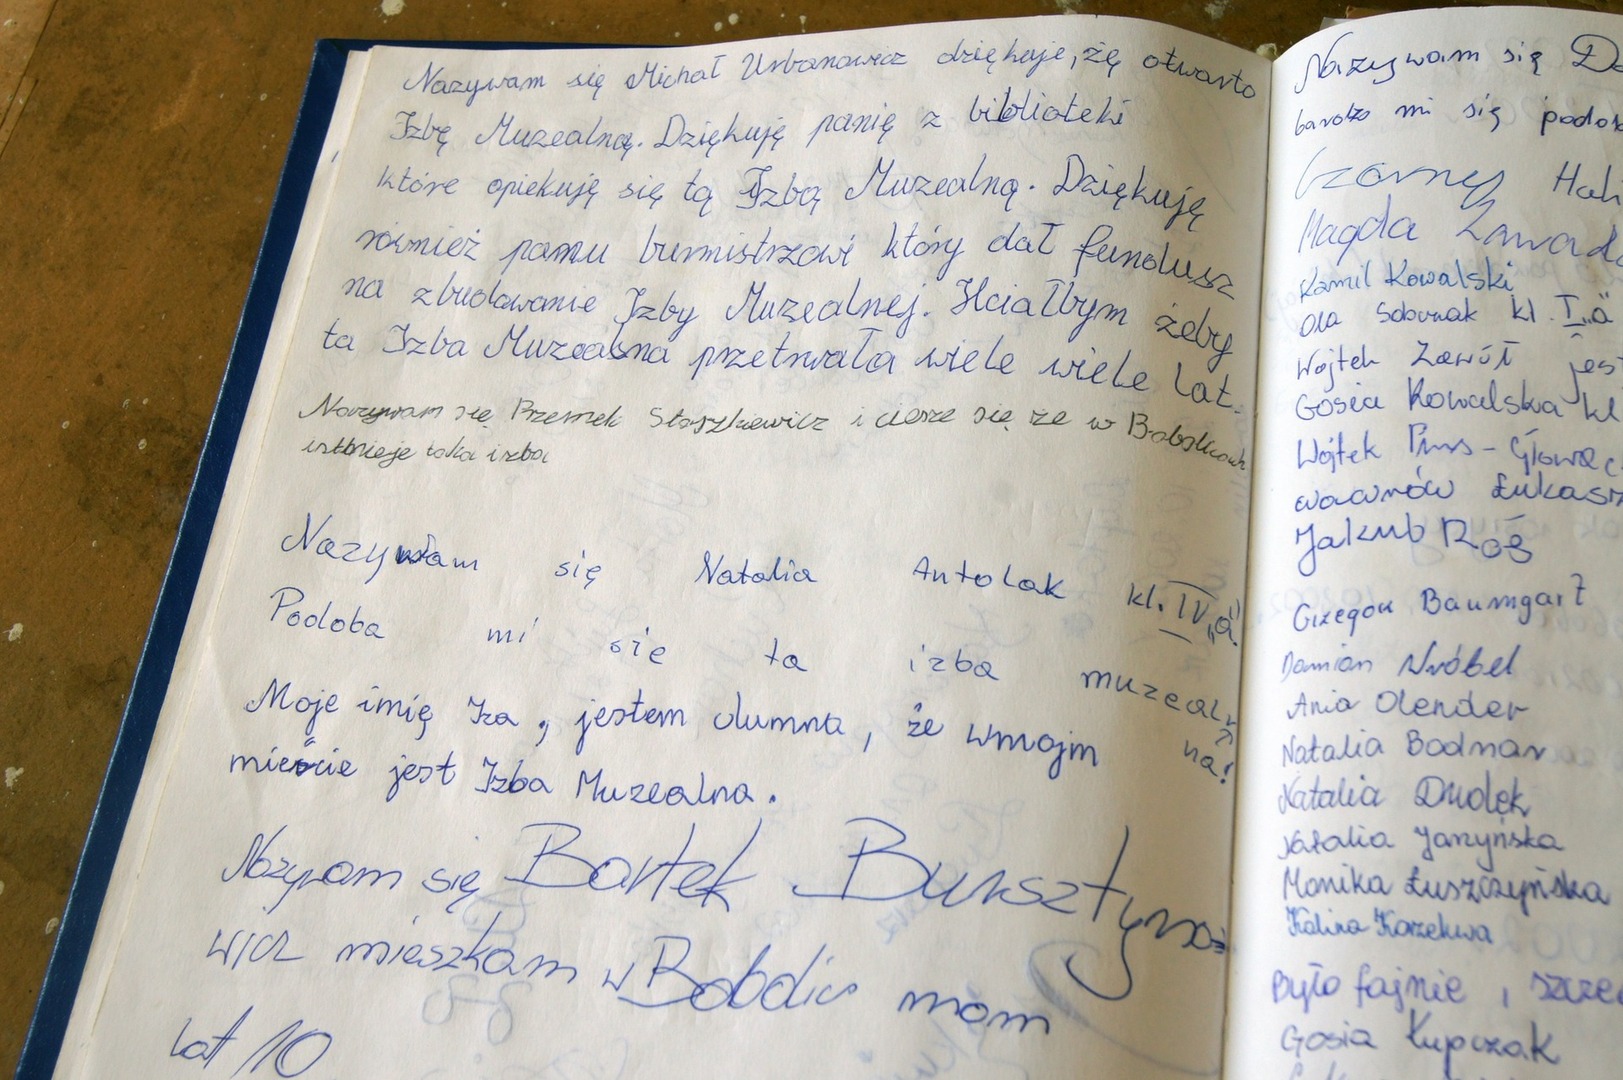 Nazywam się Michał Urbanowicz dziękuje, żę otwarto
Izbę Muzealną. Dziękuję panię z biblioteki
które opiekuję się tą Izbą Muzealną. Dziękuję
również panu burmistrzowi który dał fundusz
na zbudowanie Izby Muzealnej. Hciałbym żeby
ta Izba Muzealna przetrwała wiele wiele lat.
Nazywam się Przemek Staszkiewicz i ciesze się że w Bobolicach
istnieje taka izba
Nazywam się Natalia Antolak kl. IV „a”.
Podoba mi sie ta izba muzealna!
Moje imię Iza, jestem dumna, że wmojm
mieście jest Izba Muzealna.
Nazywam się Bartek Bursztyno
wicz mieszkam w Bobolic mam
lat 10
Nazywam się Da
bardzo mi się podob
Czarny Hali
Magda Zawad
Kamil Kowalski
Ola Sobczak kl. I „a
Wojtek Zawół jes
Gosia Kowalska kl
Wojtek Głowac
Łukasz
Jakub Koś
Grzegorz Baumgart
Damian Wróbel
Ania Olender
Natalia Bodnar
Natalia Dudek
Natalia Jarzyńska
Monika Łuszczyńska
Kalina Korzekwa
Było fajnie, szcze
Gosia Kupczak